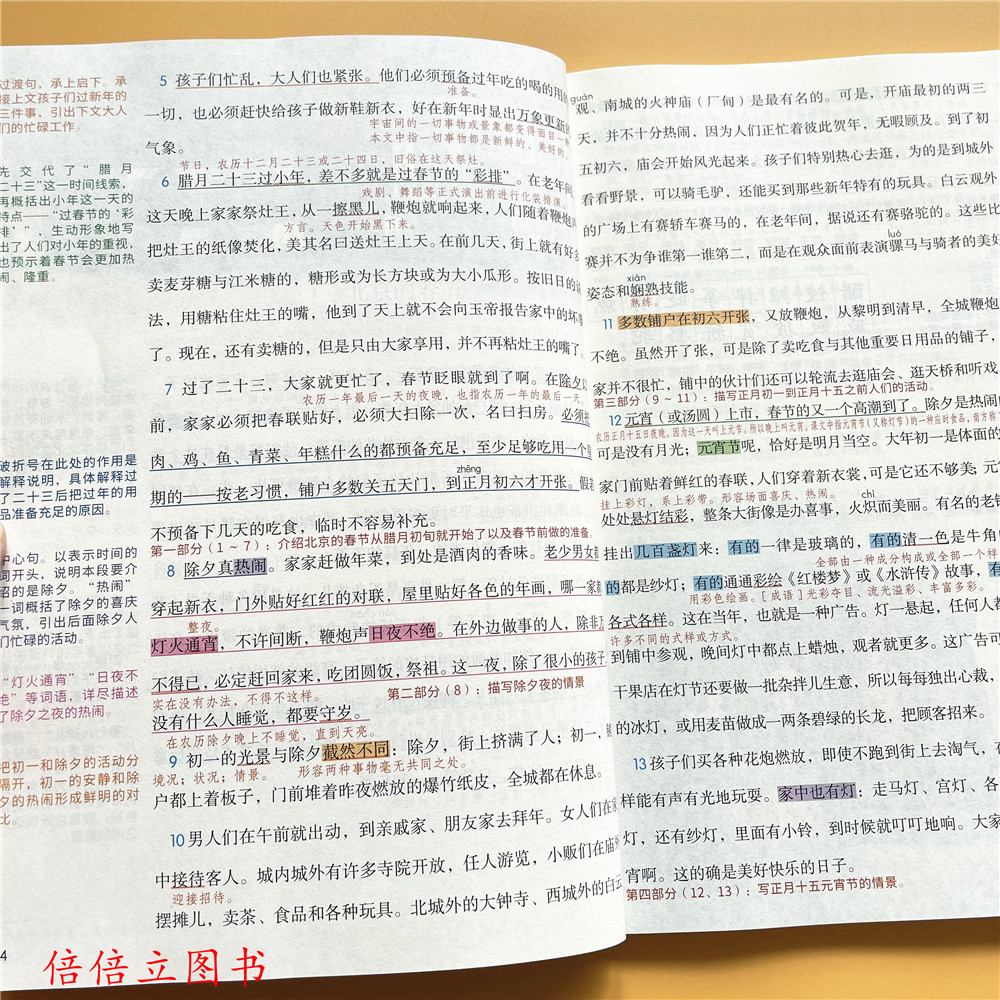 过渡句，承上启下。承
接上文孩子们过新年的
三件事，引出下文大人
们的忙碌工作。
先交代了“腊月
二十三”这一时间线索，
再概括出小年这一天的
特点——“过春节的‘彩
排’”，生动形象地写
出了人们对小年的重视，
也预示着春节会更加热
闹、隆重。
破折号在此处的作用是
解释说明，具体解释过
了二十三后把过年的用
品准备充足的原因。
中心句。以表示时间的
词开头，说明本段要介
绍的是除夕。“热闹”
一词概括了除夕的喜庆
气氛，引出后面除夕人
们忙碌的活动。
“灯火通宵”“日夜不
绝”等词语，详尽描述
了除夕之夜的热闹。
把初一和除夕的活动分
隔开，初一的安静和除
夕的热闹形成鲜明的对
比。
4
5 孩子们忙乱，大人们也紧张。他们必须预备过年吃的喝的用的
准备。
一切，也必须赶快给孩子做新鞋新衣，好在新年时显出万象更新的
宇宙间的一切事物或景象都变得面目一
本文中指一切事物都是新鲜的、美好的。
气象。
节日，农历十二月二十三或二十四日，旧俗在这天祭灶。
6 腊月二十三过小年，差不多就是过春节的“彩排”。在老年间
戏剧、舞蹈等正式演出前进行化装排演。
这天晚上家家祭灶王，从一擦黑儿，鞭炮就响起来，人们随着鞭炮
方言。天色开始黑下来。
把灶王的纸像焚化，美其名曰送灶王上天。在前几天，街上就有好多
卖麦芽糖与江米糖的，糖形或为长方块或为大小瓜形。按旧日的说
法，用糖粘住灶王的嘴，他到了天上就不会向玉帝报告家中的坏事
了。现在，还有卖糖的，但是只由大家享用，并不再粘灶王的嘴了。
7 过了二十三，大家就更忙了，春节眨眼就到了啊。在除夕以
农历一年最后一天的夜晚，也指农历一年的最后一天。
前，家家必须把春联贴好，必须大扫除一次，名曰扫房。必须把
肉、鸡、鱼、青菜、年糕什么的都预备充足，至少足够吃用一个星
zhēng
期的——按老习惯，铺户多数关五天门，到正月初六才开张。假若
不预备下几天的吃食，临时不容易补充。
第一部分（1～7）：介绍北京的春节从腊月初旬就开始了以及春节前做的准备。
8 除夕真热闹。家家赶做年菜，到处是酒肉的香味。老少男女都
穿起新衣，门外贴好红红的对联，屋里贴好各色的年画，哪一家都
整夜。
灯火通宵，不许间断，鞭炮声日夜不绝。在外边做事的人，除非万
不得已，必定赶回家来，吃团圆饭，祭祖。这一夜，除了很小的孩子，
实在没有办法，不得不这样。 第二部分（8）：描写除夕夜的情景
没有什么人睡觉，都要守岁。
在农历除夕晚上不睡觉，直到天亮。
9 初一的光景与除夕截然不同：除夕，街上挤满了人；初一，铺
境况；状况；情景。 形容两种事物毫无共同之处。
户都上着板子，门前堆着昨夜燃放的爆竹纸皮，全城都在休息。
10 男人们在午前就出动，到亲戚家、朋友家去拜年。女人们在家
中接待客人。城内城外有许多寺院开放，任人游览，小贩们在庙外
迎接招待。
摆摊儿，卖茶、食品和各种玩具。北城外的大钟寺、西城外的白云
guàn
观、南城的火神庙（厂甸）是最有名的。可是，开庙最初的两三
天，并不十分热闹，因为人们正忙着彼此贺年，无暇顾及。到了初
五初六，庙会开始风光起来。孩子们特别热心去逛，为的是到城外
看看野景，可以骑毛驴，还能买到那些新年特有的玩具。白云观外
的广场上有赛轿车赛马的，在老年间，据说还有赛骆驼的。这些比
luó
赛并不为争谁第一谁第二，而是在观众面前表演骡马与骑者的美好
xián
姿态和娴熟技能。
熟练。
11 多数铺户在初六开张，又放鞭炮，从黎明到清早，全城鞭炮
不绝。虽然开了张，可是除了卖吃食与其他重要日用品的铺子，
家并不很忙，铺中的伙计们还可以轮流去逛庙会、逛天桥和听戏。
第三部分（9～11）：描写正月初一到正月十五之前人们的活动。
12 元宵（或汤圆）上市，春节的又一个高潮到了。除夕是热闹的
农历正月十五日夜晚。因为这一天叫上元节。所以晚上叫元宵。课文中指元宵节（又称灯节）的一种应时食品，南方称
可是没有月光；元宵节呢，恰好是明月当空。大年初一是体面的
家门前贴着鲜红的春联，人们穿着新衣裳，可是它还不够美；元宵
挂上彩灯，系上彩带。形容场面喜庆、热闹。
chì
处处悬灯结彩，整条大街像是办喜事，火炽而美丽。有名的老铺
挂出几百盏灯来：有的一律是玻璃的，有的清一色是牛角的
全部由一种成分构成或全部一个样
的都是纱灯；有的通通彩绘《红楼梦》或《水浒传》故事，有
用彩色绘画。[成语]光彩夺目、流光溢彩、丰富多彩。
各式各样。这在当年，也就是一种广告。灯一悬起，任何人都
许多不同的式样或方式。
到铺中参观，晚间灯中都点上蜡烛，观者就更多。这广告可
干果店在灯节还要做一批杂拌儿生意，所以每每独出心裁，
的冰灯，或用麦苗做成一两条碧绿的长龙，把顾客招来。
13 孩子们买各种花炮燃放，即使不跑到街上去淘气，在
样能有声有光地玩耍。家中也有灯：走马灯、宫灯、各
灯，还有纱灯，里面有小铃，到时候就叮叮地响。大家
宵啊。这的确是美好快乐的日子。
第四部分（12、13）：写正月十五元宵节的情景。
倍倍立图书